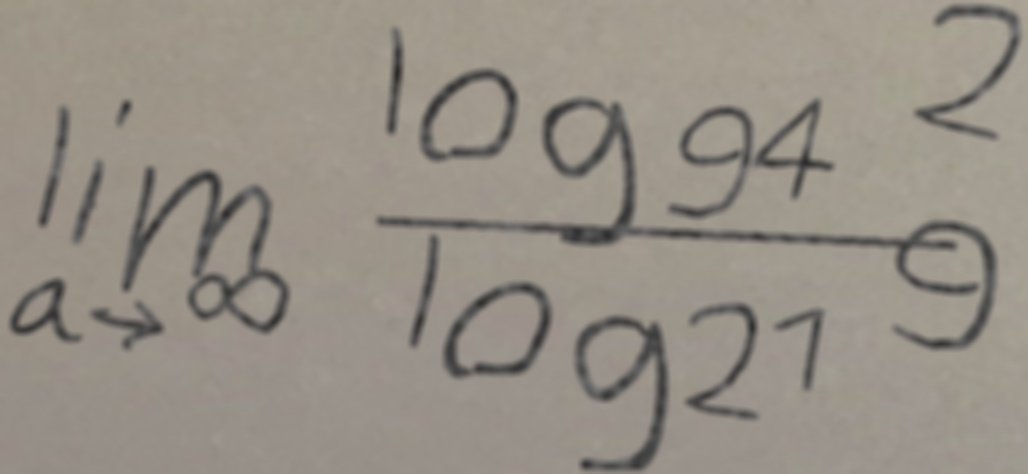 lim a→∞ \frac{log_{94} 2}{log_{21} 9}